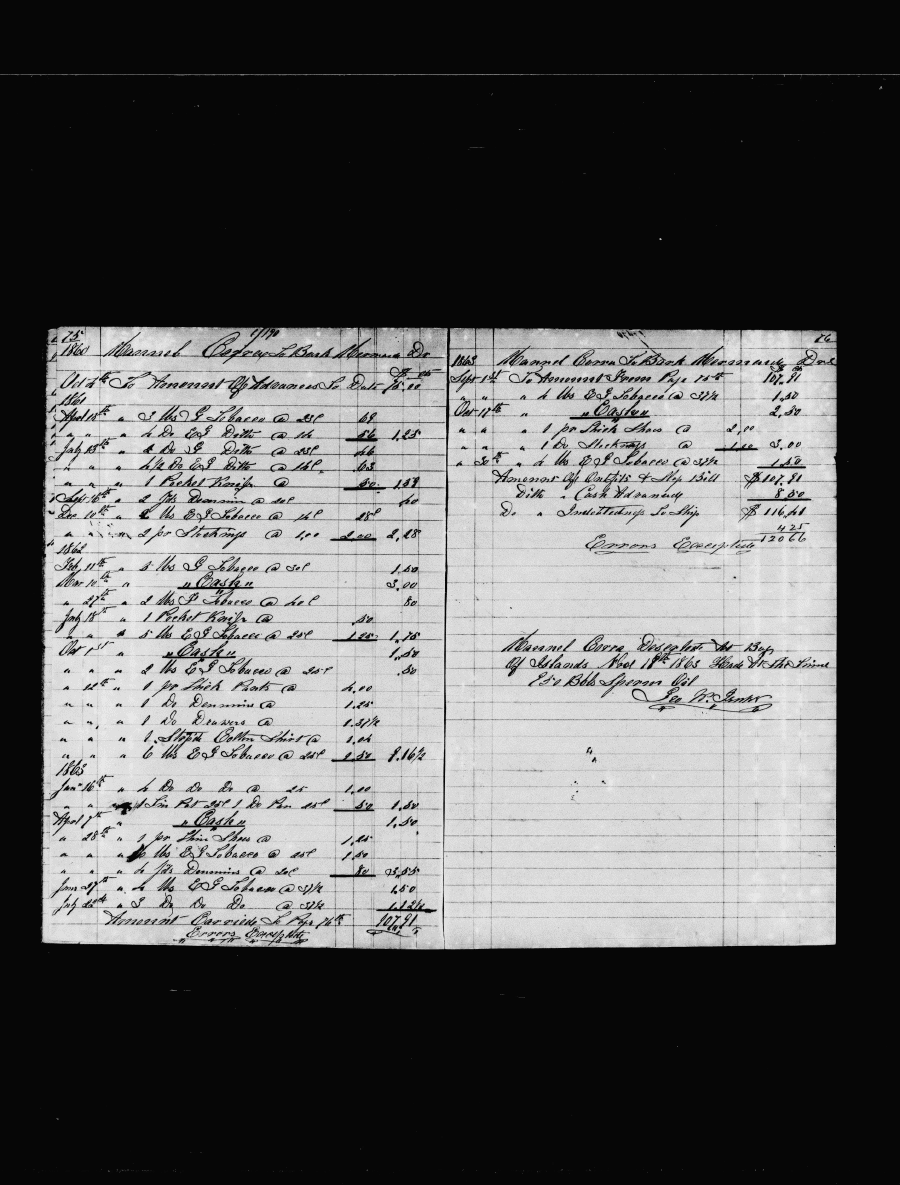 75
1/190
1860 Manuel Corra To Bark Dr
$ cts
Oct 4th To Amount Of Advances To Date 75.00
1861
April 15th " 3 lbs G Tobacco @ 23¢ 69
" " " 4 Do EG Ditto @ 14 56 1,25
July 13th " 2 Do G Ditto @ 23¢ 46
" " " 4 1/2 Do EG Ditto @ 14¢ 63
" " " 1 Pocket Knife @ 50 1,59
Sept 16th " 2 yds Dennim @ 20¢ 40
Dec 10th " 2 lbs EG Tobacco @ 14¢ 28¢
" " " 2 pr Stockings @ 1,00 2,00 2,28
1862
Feb 11th " 5 lbs G Tobacco @ 30¢ 1,50
Mar 10th " " Cash " 3,00
" 27th " 2 lbs Tobacco @ 40¢ 80
July 18th " 1 Pocket Knife @ ,50
" " " 5 lbs EG Tobacco @ 25¢ 1,25 1,75
Oct 1st " " Cash " 1,50
" " " 2 lbs EG Tobacco @ 25¢ ,50
" 12th " 1 pr Thick Pants @ 4,00
" " " 1 Do Dennims @ 1,25
" " " 1 Do Drawers @ 1.37 1/2
" " " 1 Cotton Shirt @ 1,04
" " " 6 lbs EG Tobacco @ 25¢ 1,50 9.16 1/2
1863
Jany 16th " 4 Do Do Do @ 25 1,00
" " " 1 Tin Pot 25¢ 1 Do Pan 25¢ 50 1,50
April 7th " " Cash " 1,50
" 28th " 1 pr Thin Shoes @ 1,25
" " " 6 lbs EG Tobacco @ 25¢ 1,50
" " " 4 yds Dennims @ 20¢ 80 3,55
June 27th " 4 lbs EG Tobacco @ 37 1/2 1,50
July 20th " 3 Do Do Do @ 37 1/2 1.12 1/2
Amount Carried To Page 76th 107,91
" Errors Excepted "
76
1863 Manuel Corra To Bark Dr
$ cts
Sept 1st To Amount From Page 75th 107.91
" " " 4 lbs EG Tobacco @ 37 1/2 1,50
Oct 17th " " Cash " 2,50
" " " 1 pr Thick Shoes @ 2,00
" " " 1 Do Stockings @ 1,00 3.00
" 30th " 4 lbs EG Tobacco @ 37 1/2 1.50
Amount Of Outfits & Slop Bill $107.91
Ditto " Cash Advanced 8.50
Do " Indebtedness To Ship $ 116,41
4 25
120 66
Errors Excepted
Manuel Corra Deserted At Bay
Of Islands Nov 18th 1863 At The Time
Bbls Sperm Oil
Geo W.